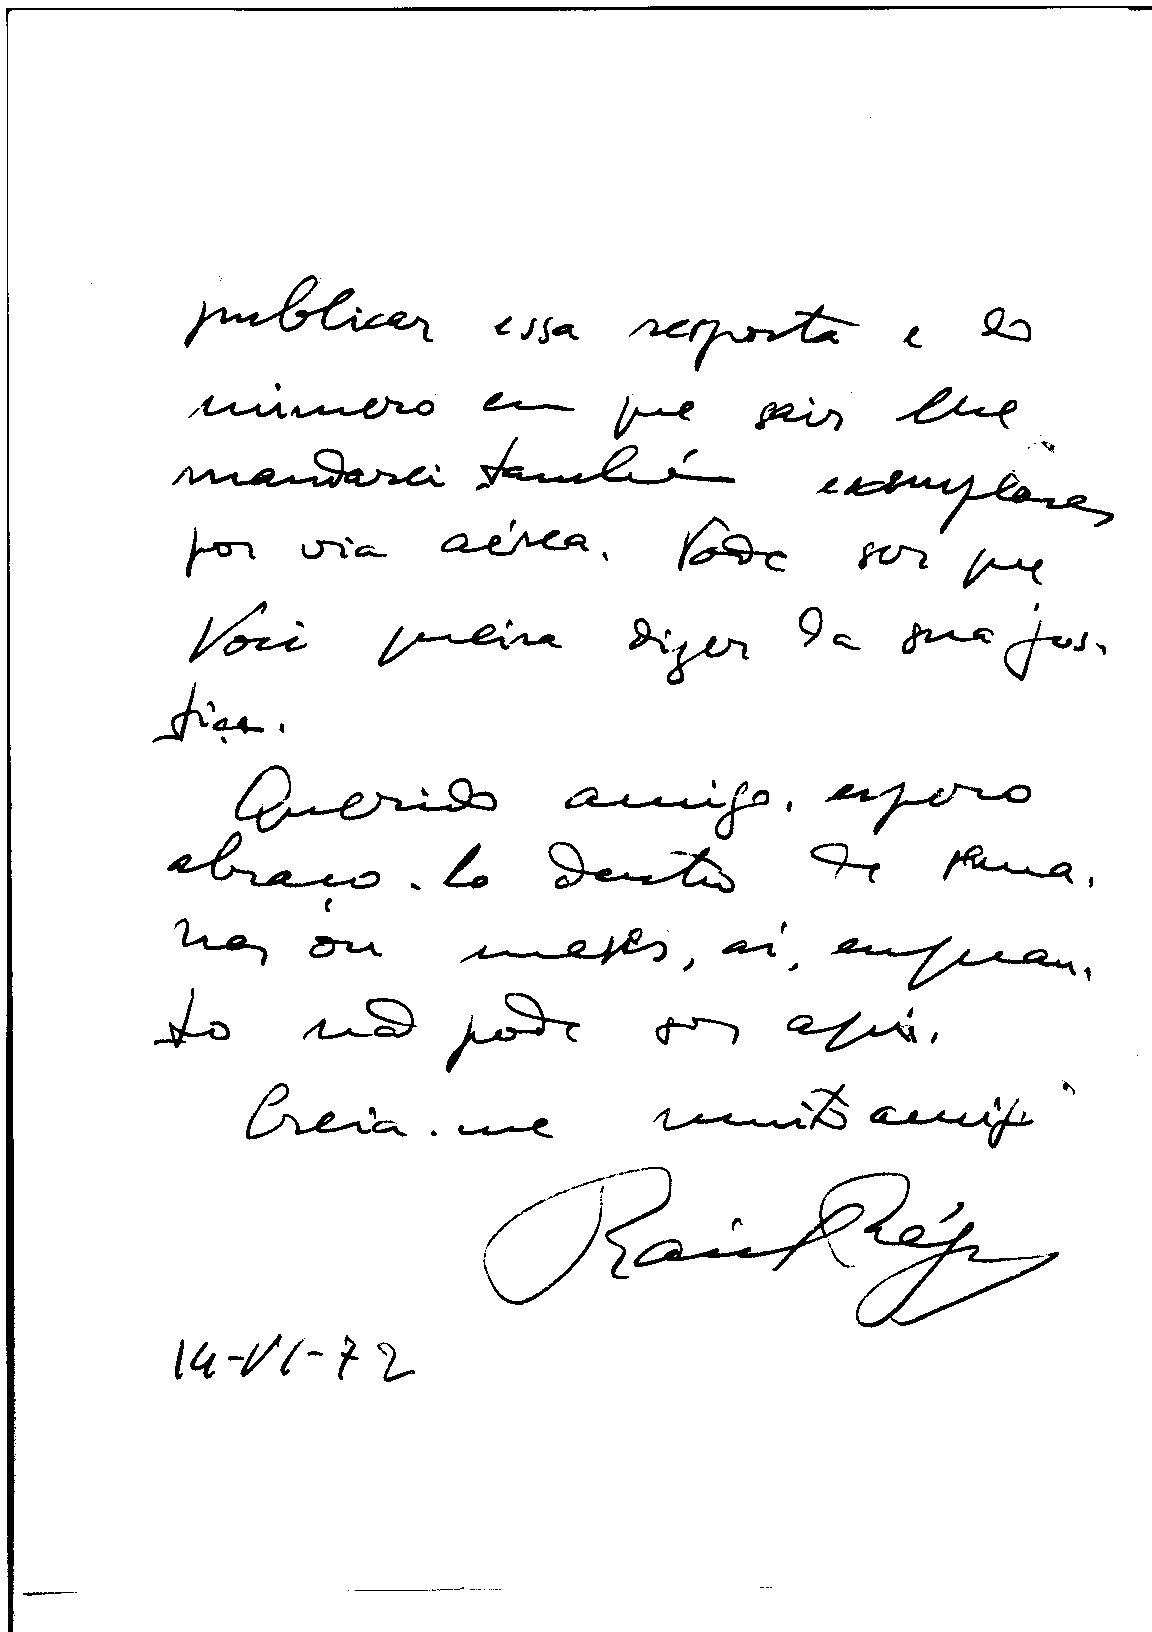 publicar essa resposta e do
número em que sair lhe
mandarei também exemplares
por via aérea. Pode ser que
Você queira dizer da sua jus-
tiça.
Querido amigo, espero
abraçá-lo dentro de sema-
nas ou meses, aí, enquan-
to não pode ser aqui.
Creia-me muito amigo
Raúl Rêgo
14-VI-72